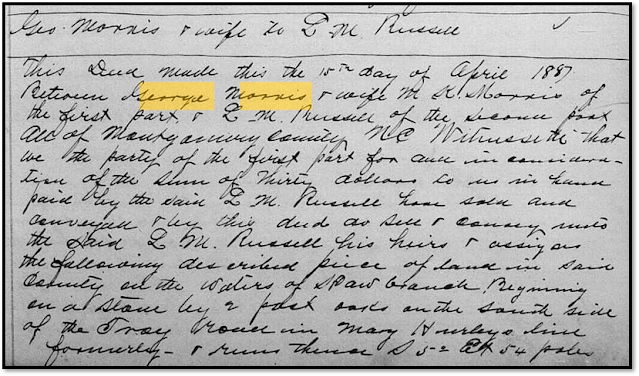 Geo. Morris & wife to L M. Russell
This Deed made this the 15th Day of April 1887
Between George Morris & wife M. A. Morris of
the first part & L M. Russell of the second part
all of Montgomery county NC Witnesseth that
we the party of the first part for and in considera-
tion of the sum of Thirty dollars to us in hand
paid by the said L M. Russell have sold and
conveyed & by this deed do sell & convey unto
the said L M. Russell his heirs & assigns
the following described piece of land in said
County on the waters of Spaw branch Beginning
on a stone by 2 post oaks on the south side
of the Troy road in Mary Hurleys line
formerly - & runs thence S 52 54 poles